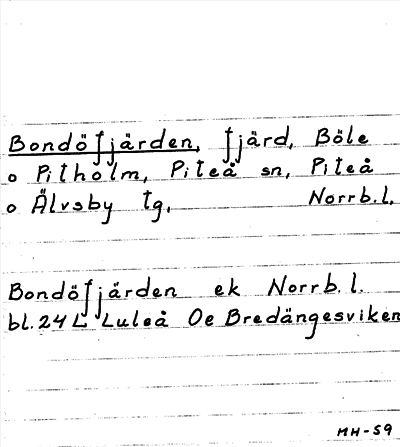 Bondöfjärden, fjärd, Böle
o Pitholm, Piteå sn, Piteå
o Älvsby tg, Norrb.l.
Bondöfjärden ek Norrb.l.
bl.24 L Luleå Oe Bredängesviken
MH-59